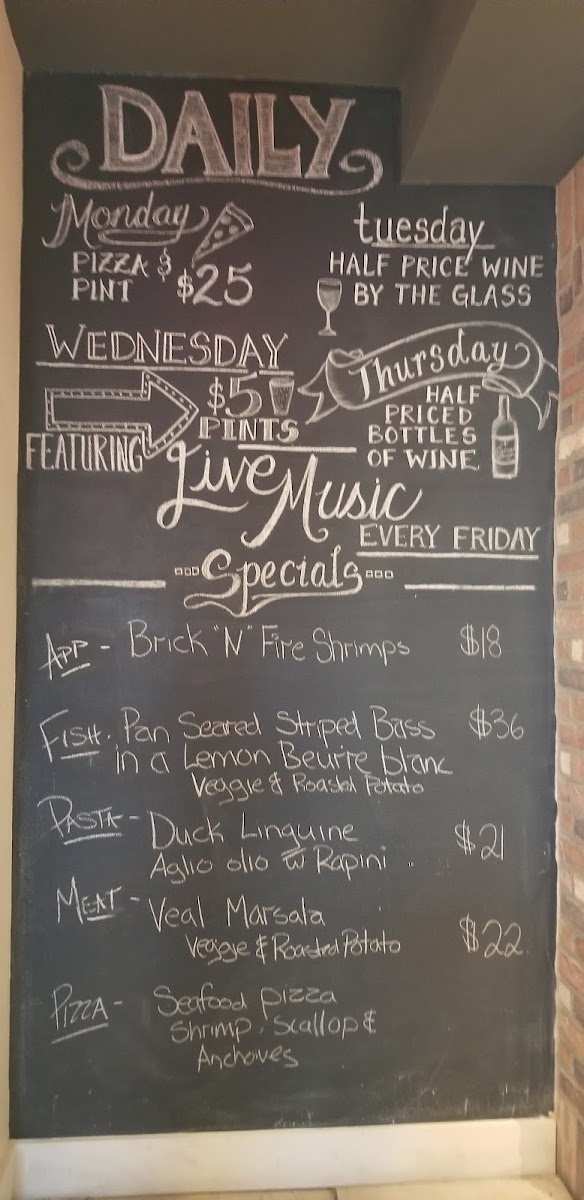 DAILY
Monday
PIZZA &
PINT $25
tuesday
HALF PRICE WINE
BY THE GLASS
WEDNESDAY
$5
PINTS
Thursday
HALF
PRICED
BOTTLES
OF WINE
FEATURING
Live Music
EVERY FRIDAY
Specials
App - Brick "N" Fire Shrimps $18
FISH. Pan Seared Striped Bass $36
in a Lemon Beurre blanc
Veggie & Roasted Potato
PASTA - Duck Linguine $21
Aglio olio w Rapini
MEAT - Veal Marsala
Veggie & Roasted Potato $22
PIZZA - Seafood pizza
Shrimp, Scallop &
Anchoives